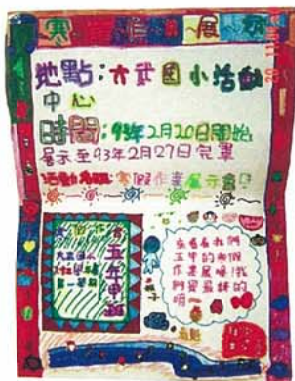 寒 展
地點:大武國小活動
中心
時間:93年2月20日開始
展示至93年2月27日完畢
活動名稱:寒假作業展示會
五年甲班
來看看我們
五甲的寒假
作業展喔!我
們是最棒的